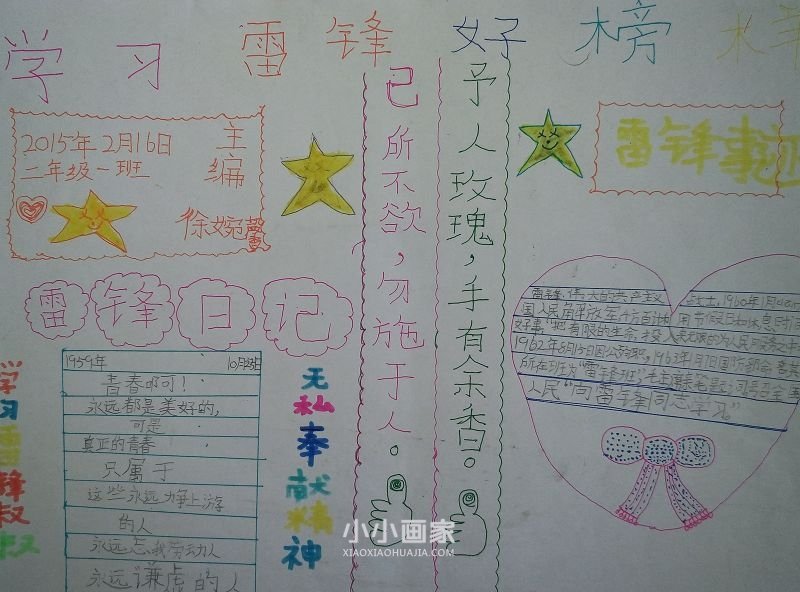 学习雷锋好榜样
2015年2月16日
二年级一班
主编
徐婉馨
己所不欲，勿施于人。
予人玫瑰，手有余香。
雷锋事迹
雷锋日记
学习雷锋叔叔
1959年 10月25日
青春啊可！
永远都是美好的，
可是
真正的青春
只属于
这些永远力争上游
的人
永远忘我劳动人
永远谦虚的人
无私奉献精神
雷锋，伟大的共产主义战士，1960年1月
国人民解放军
好事，"把有限的生命，投入到无限的为人民服务之中
1962年8月15日因公殉职，1963年1月7日国防部命
所在班为"雷锋班"，毛主席
人民"向雷锋同志学习"
小小画家
XIAOXIAOHUAJIA.COM